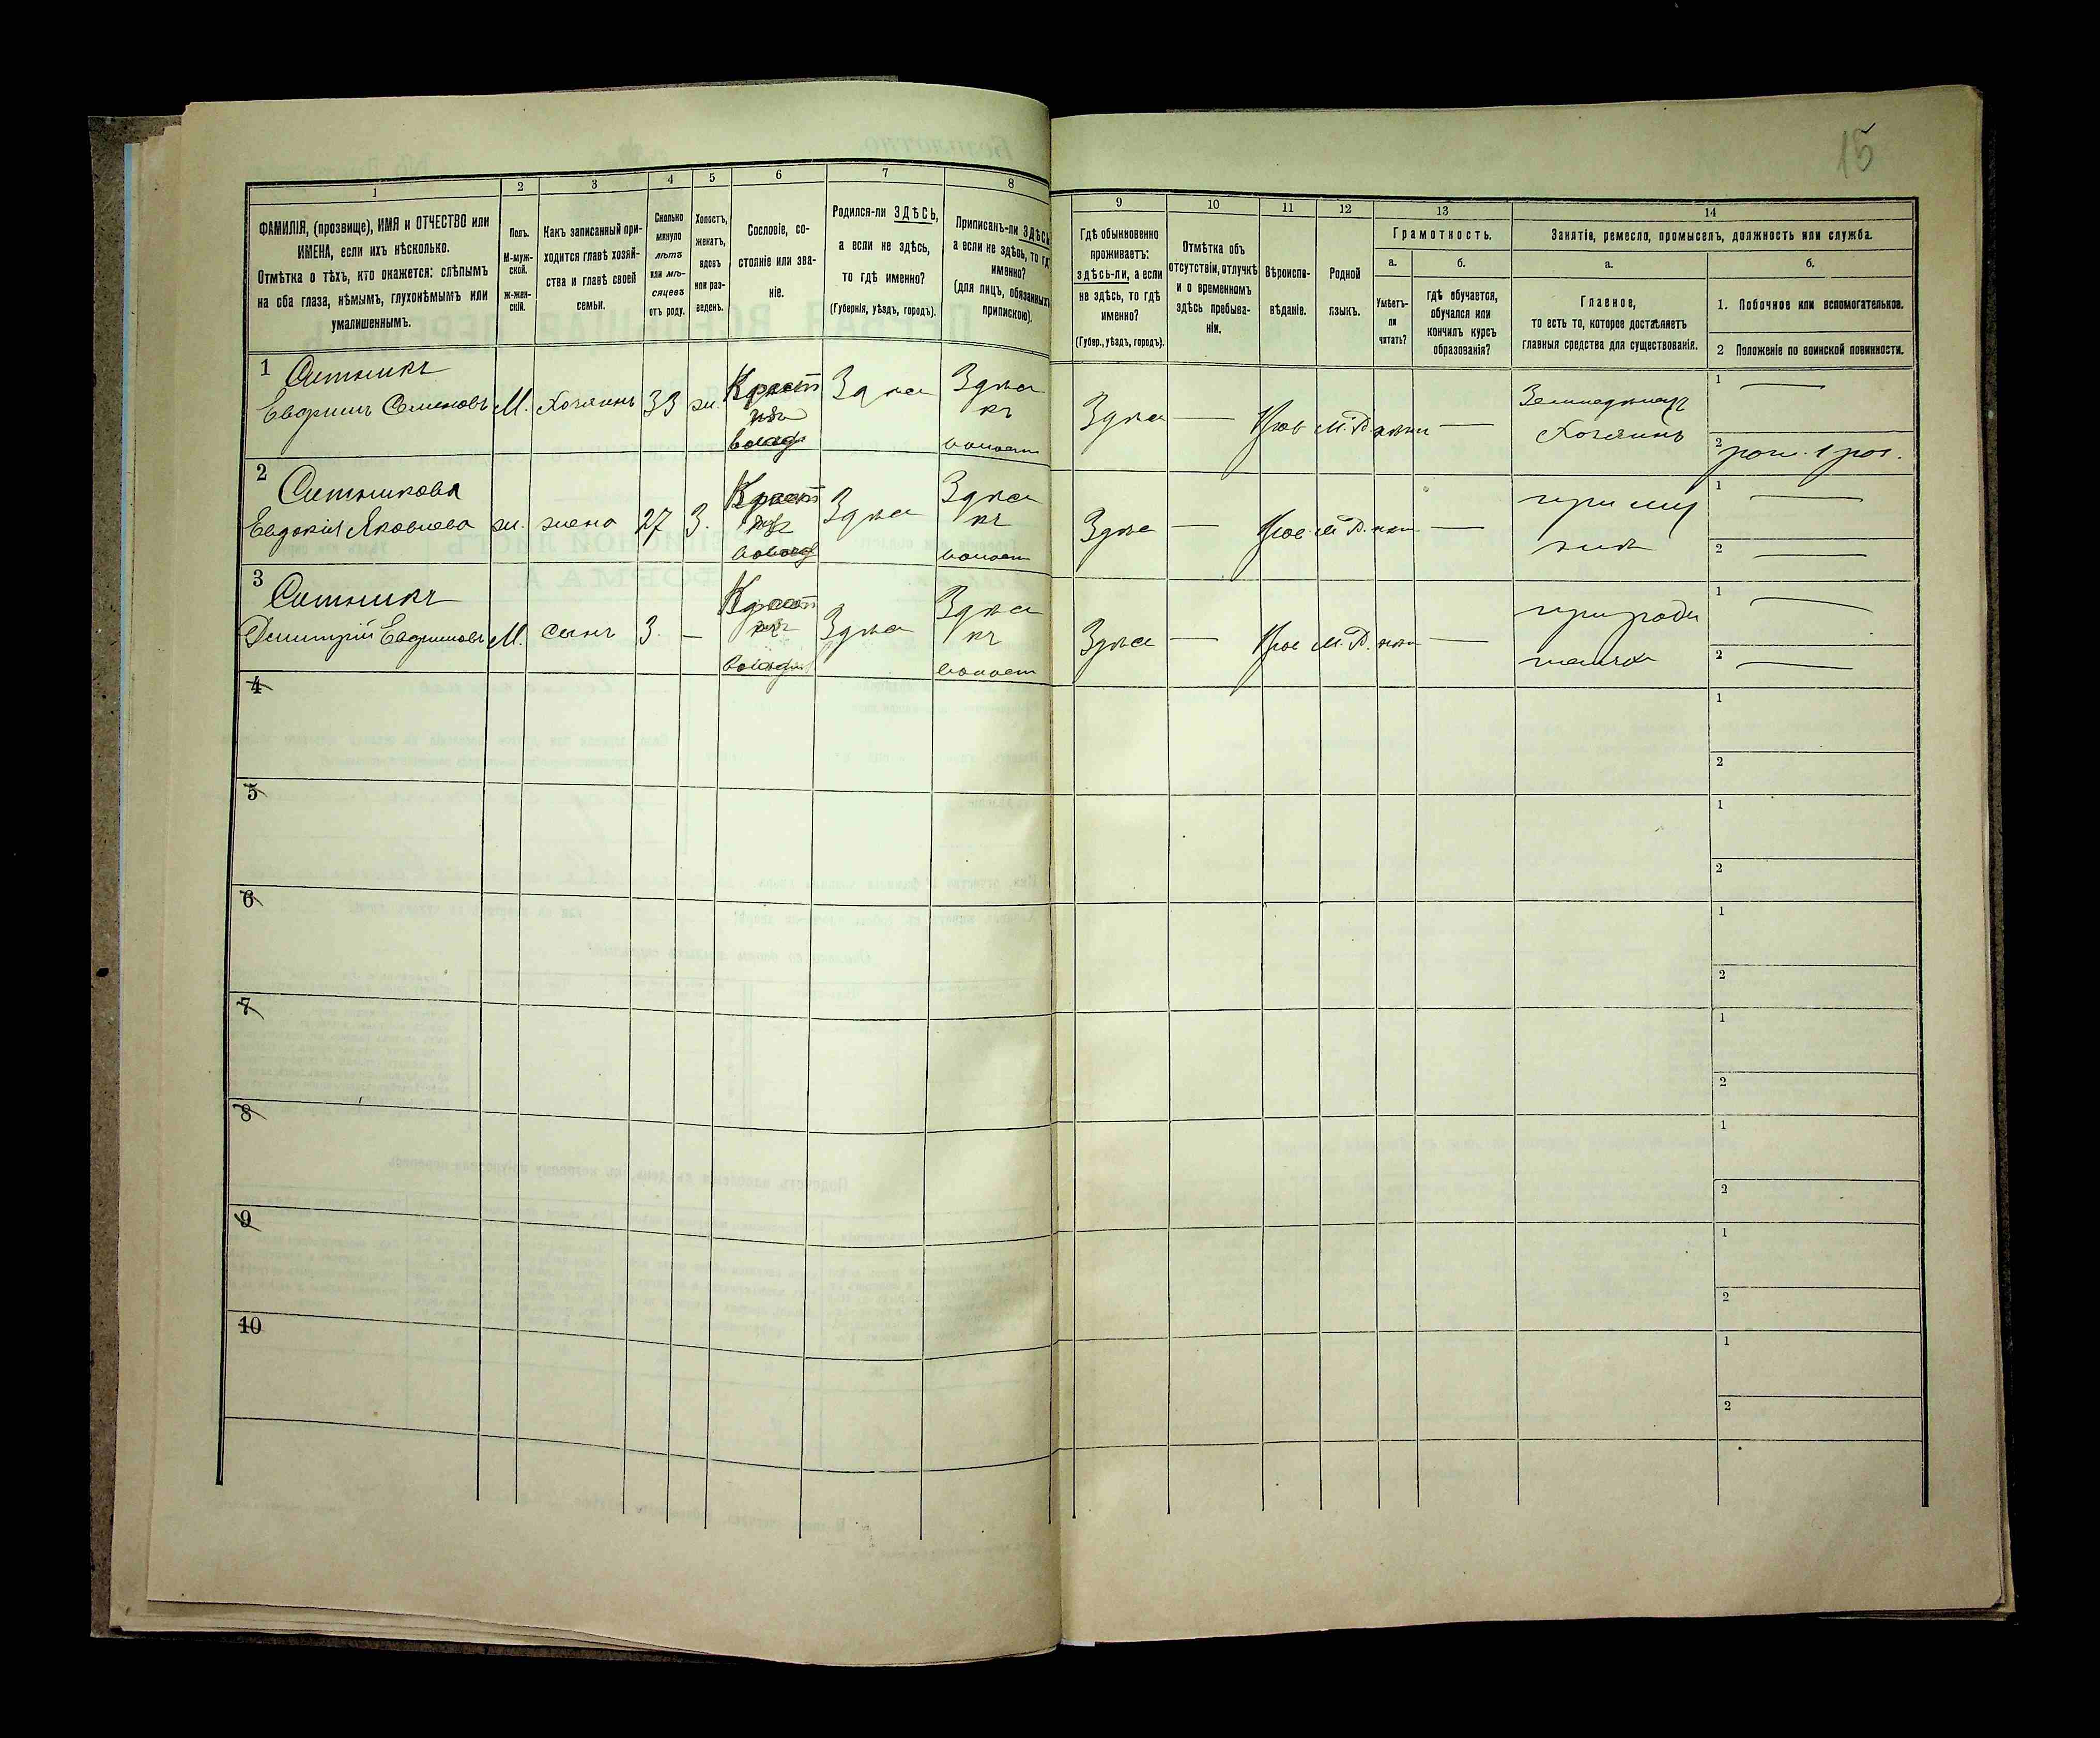 15
1
ФАМИЛІЯ, (прозвище), ИМЯ и ОТЧЕСТВО или
ИМЕНА, если ихъ нѣсколько.
Отмѣтка о тѣхъ, кто окажется: слѣпымъ
на оба глаза, нѣмымъ, глухонѣмымъ или
умалишеннымъ.
2
Полъ.
М-муж-
ской.
Ж-жен-
скій.
3
Какъ записанный при-
ходится главѣ хозяй-
ства и главѣ своей
семьи.
4
Сколько
минуло
лѣтъ
или мѣ-
сяцевъ
отъ роду.
5
Холостъ,
женатъ,
вдовъ
или раз-
веденъ.
6
Сословіе, со-
стояніе или зва-
ніе.
7
Родился-ли ЗДѢСЬ,
а если не здѣсь,
то гдѣ именно?
(Губернія, уѣздъ, городъ).
8
Приписанъ-ли ЗДѢСЬ
а если не здѣсь, то гдѣ
именно?
(для лицъ, обязанныхъ
припискою).
9
Гдѣ обыкновенно
проживаетъ:
здѣсь-ли, а если
не здѣсь, то гдѣ
именно?
(Губер., уѣздъ, городъ).
10
Отмѣтка объ
отсутствіи, отлучкѣ
и о временномъ
здѣсь пребыва-
ніи.
11
Вѣроиспо-
вѣданіе.
12
Родной
языкъ.
13
Грамотность.
а.
Умѣетъ-
ли
читать?
б.
гдѣ обучается,
обучался или
кончилъ курсъ
образованія?
14
Занятіе, ремесло, промыселъ, должность или служба.
а.
Главное,
то есть то, которое доставляетъ
главныя средства для существованія.
б.
1. Побочное или вспомогательное.
2 Положеніе по воинской повинности.
1 Ситникъ
Евфимъ Семеновъ М. Хозяинъ 33 ж. Крест Здѣсь Здѣсь
къ
волост
Здѣсь — Прав М.Р. —
Земледѣлецъ
Хозяинъ
1 —
2
2 Ситникова
Евдокія Яковлева ж. жена 27 З. Крест Здѣсь Здѣсь
къ
волост
Здѣсь — Прав М.Р. —
при му
жѣ
1 —
2 —
3 Ситникъ
Димитрій Евфимовъ М. сынъ 3. — Крест Здѣсь Здѣсь
къ
волост
Здѣсь — Прав М.Р. —
при роди
теляхъ
1 —
2 —
4
1
2
5
1
2
6
1
2
7
1
2
8
1
2
9
1
2
10
1
2